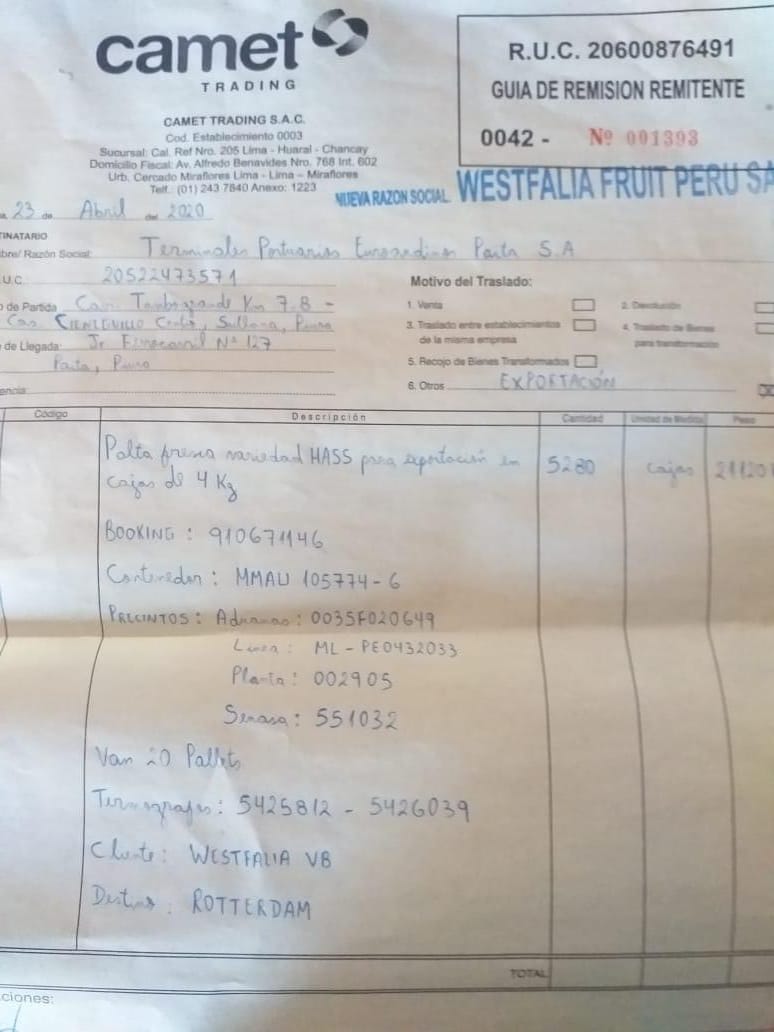 camet
TRADING
CAMET TRADING S.A.C.
Cod. Establecimiento 0003
Sucursal: Cal. Ref Nro. 205 Lima - Huaral - Chancay
Domicilio Fiscal: Av. Alfredo Benavides Nro. 768 Int. 602
Urb. Cercado Miraflores Lima - Lima - Miraflores
Telf.: (01) 243 7840 Anexo: 1223
R.U.C. 20600876491
GUIA DE REMISION REMITENTE
0042 - Nº 001393
NUEVA RAZON SOCIAL WESTFALIA FRUIT PERU SA
23 de Abril del 2020
TINATARIO
bre/ Razón Social: Terminales Portuarios Euroandinos Paita S.A
U.C. 20522473571
o de Partida Carr. Tambogrande Km 7.8 -
Cas. CIENEGUILLO Centro, Sullana, Piura
de Llegada: Jr. Ferrocarril Nº 127
Paita, Piura
encia:
Motivo del Traslado:
1. Venta
2. Devolución
3. Traslado entre establecimientos
de la misma empresa
4. Traslado de Bienes
para transformación
5. Recojo de Bienes Transformados
6. Otros EXPORTACIÓN
Código Descripción Cantidad Unidad de Medida Peso
Palta fresca variedad HASS para exportación en 5280 cajas 21120
cajas de 4 Kg
BOOKING : 910671146
Contenedor : MMAU 105774-6
PRECINTOS : Aduanas : 0035F020649
Linea : ML-PE0432033
Planta : 002905
Senasa : 551032
Van 20 Pallets
Termografos : 5425812 - 5426039
Cliente : WESTFALIA VB
Destino : ROTTERDAM
TOTAL
ciones: